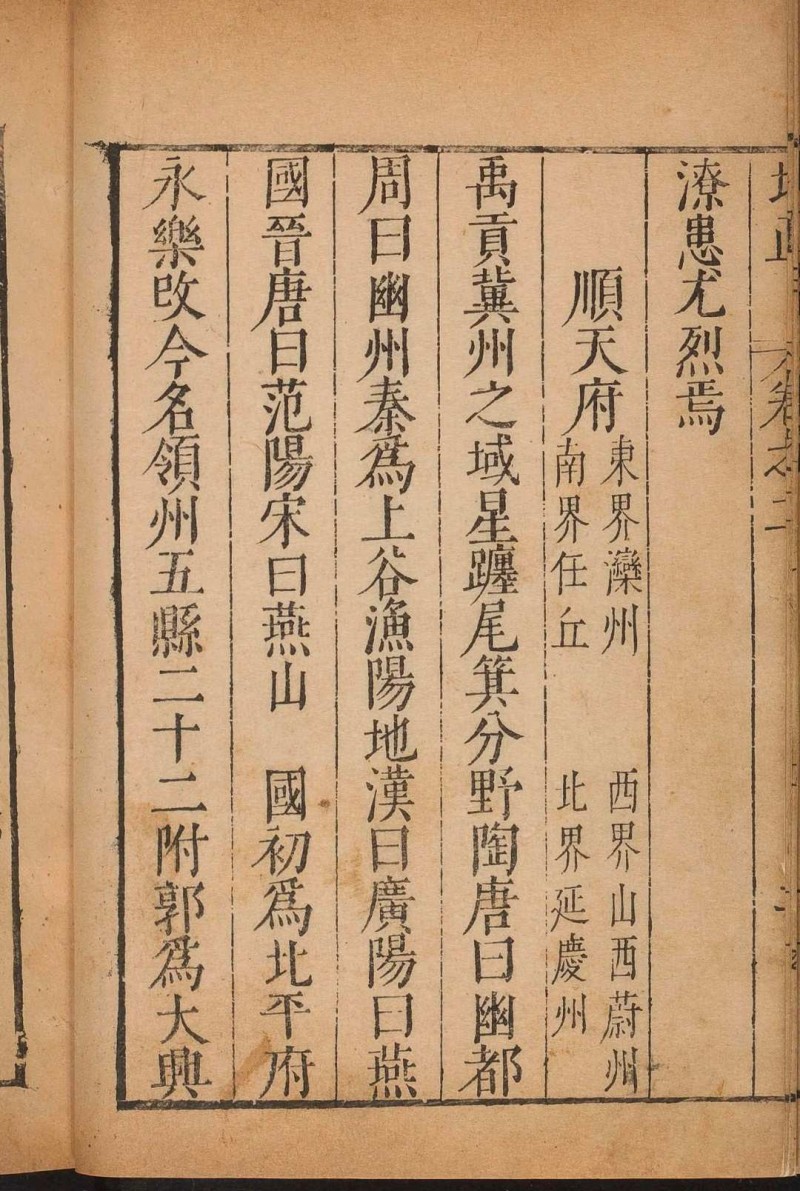 潦患尤烈焉
順天府
東界灤州 西界山西蔚州
南界任丘 北界延慶州
禹貢冀州之域星躔尾箕分野陶唐曰幽都
周曰幽州秦爲上谷漁陽地漢曰廣陽曰燕
國晉唐曰范陽宋曰燕山 國初爲北平府
永樂改今名領州五縣二十二附郭爲大興